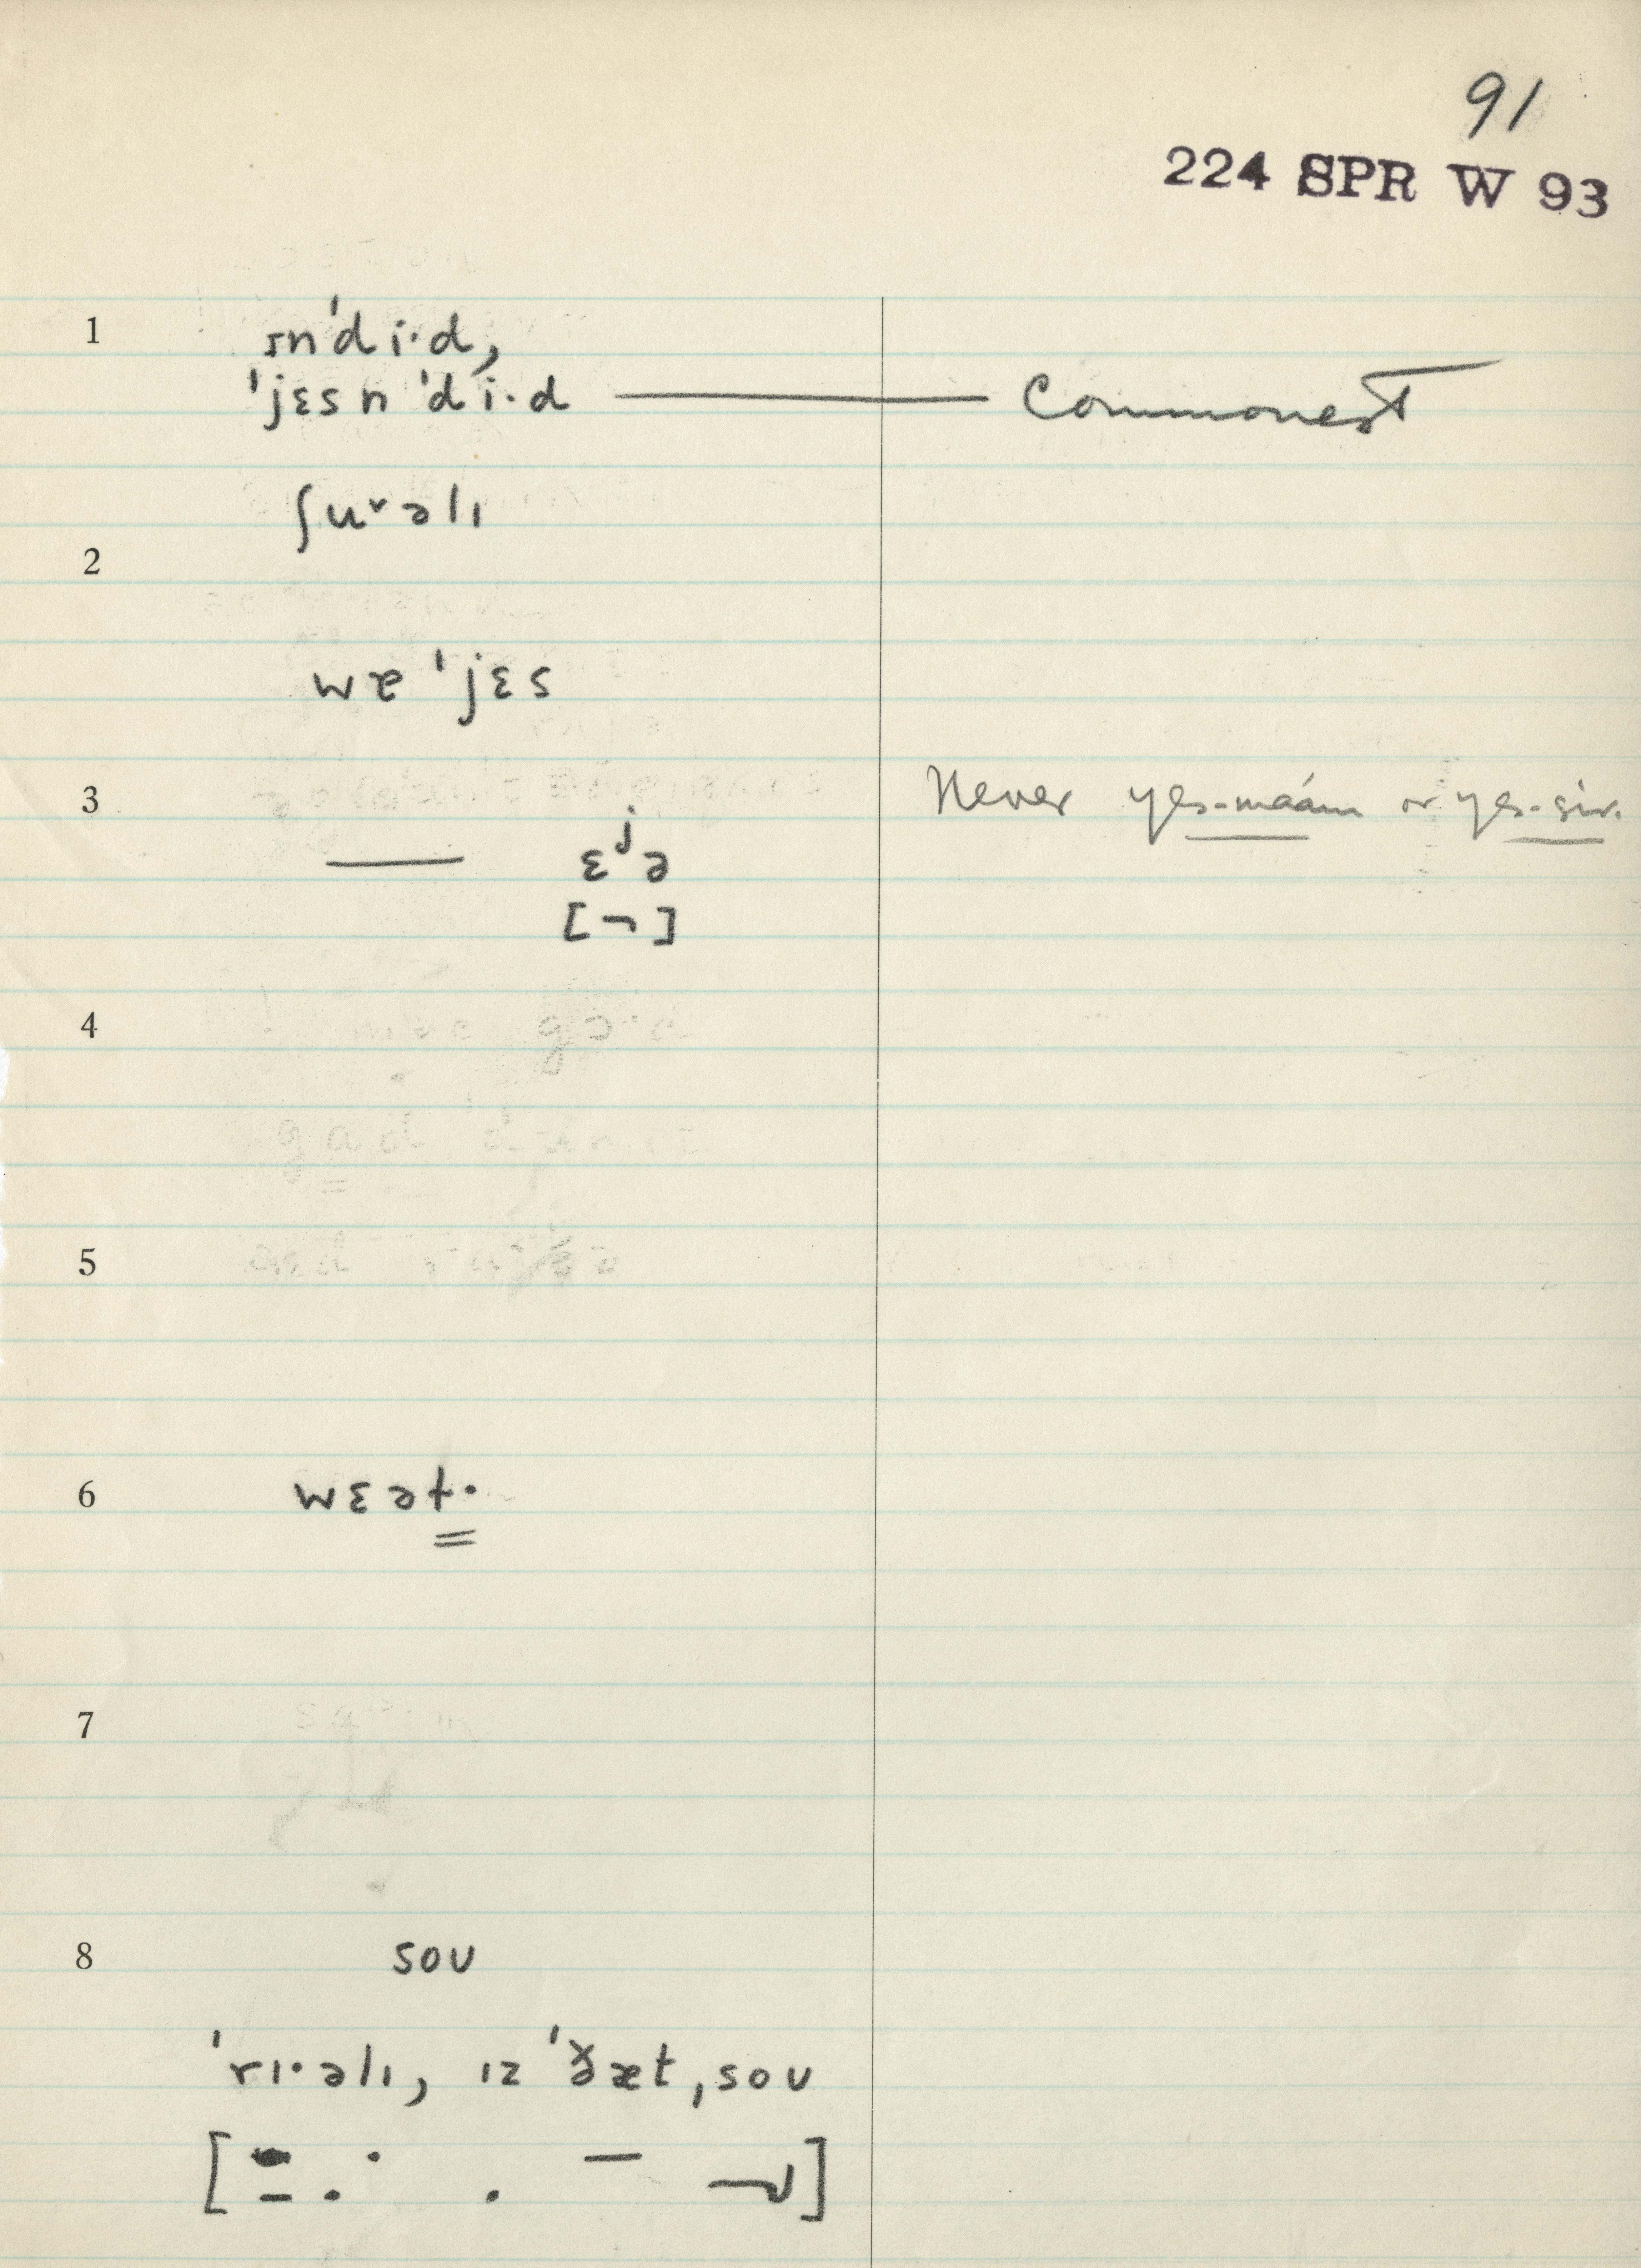 91
224 SPR W 93
1 ɪnˈdiˑd,
ˈjɛsnˈdiˑd — Commonest
ʃuᵛəlɪ
2
wɐˈjɛs
3 Never yes-ma'am or yes-sir.
— ɛʲə
[¬]
4
5
6 wɛət·
7
8 soʊ
ˈrɪˑəlɪ, ɪz ˈðæt ˌsoʊ